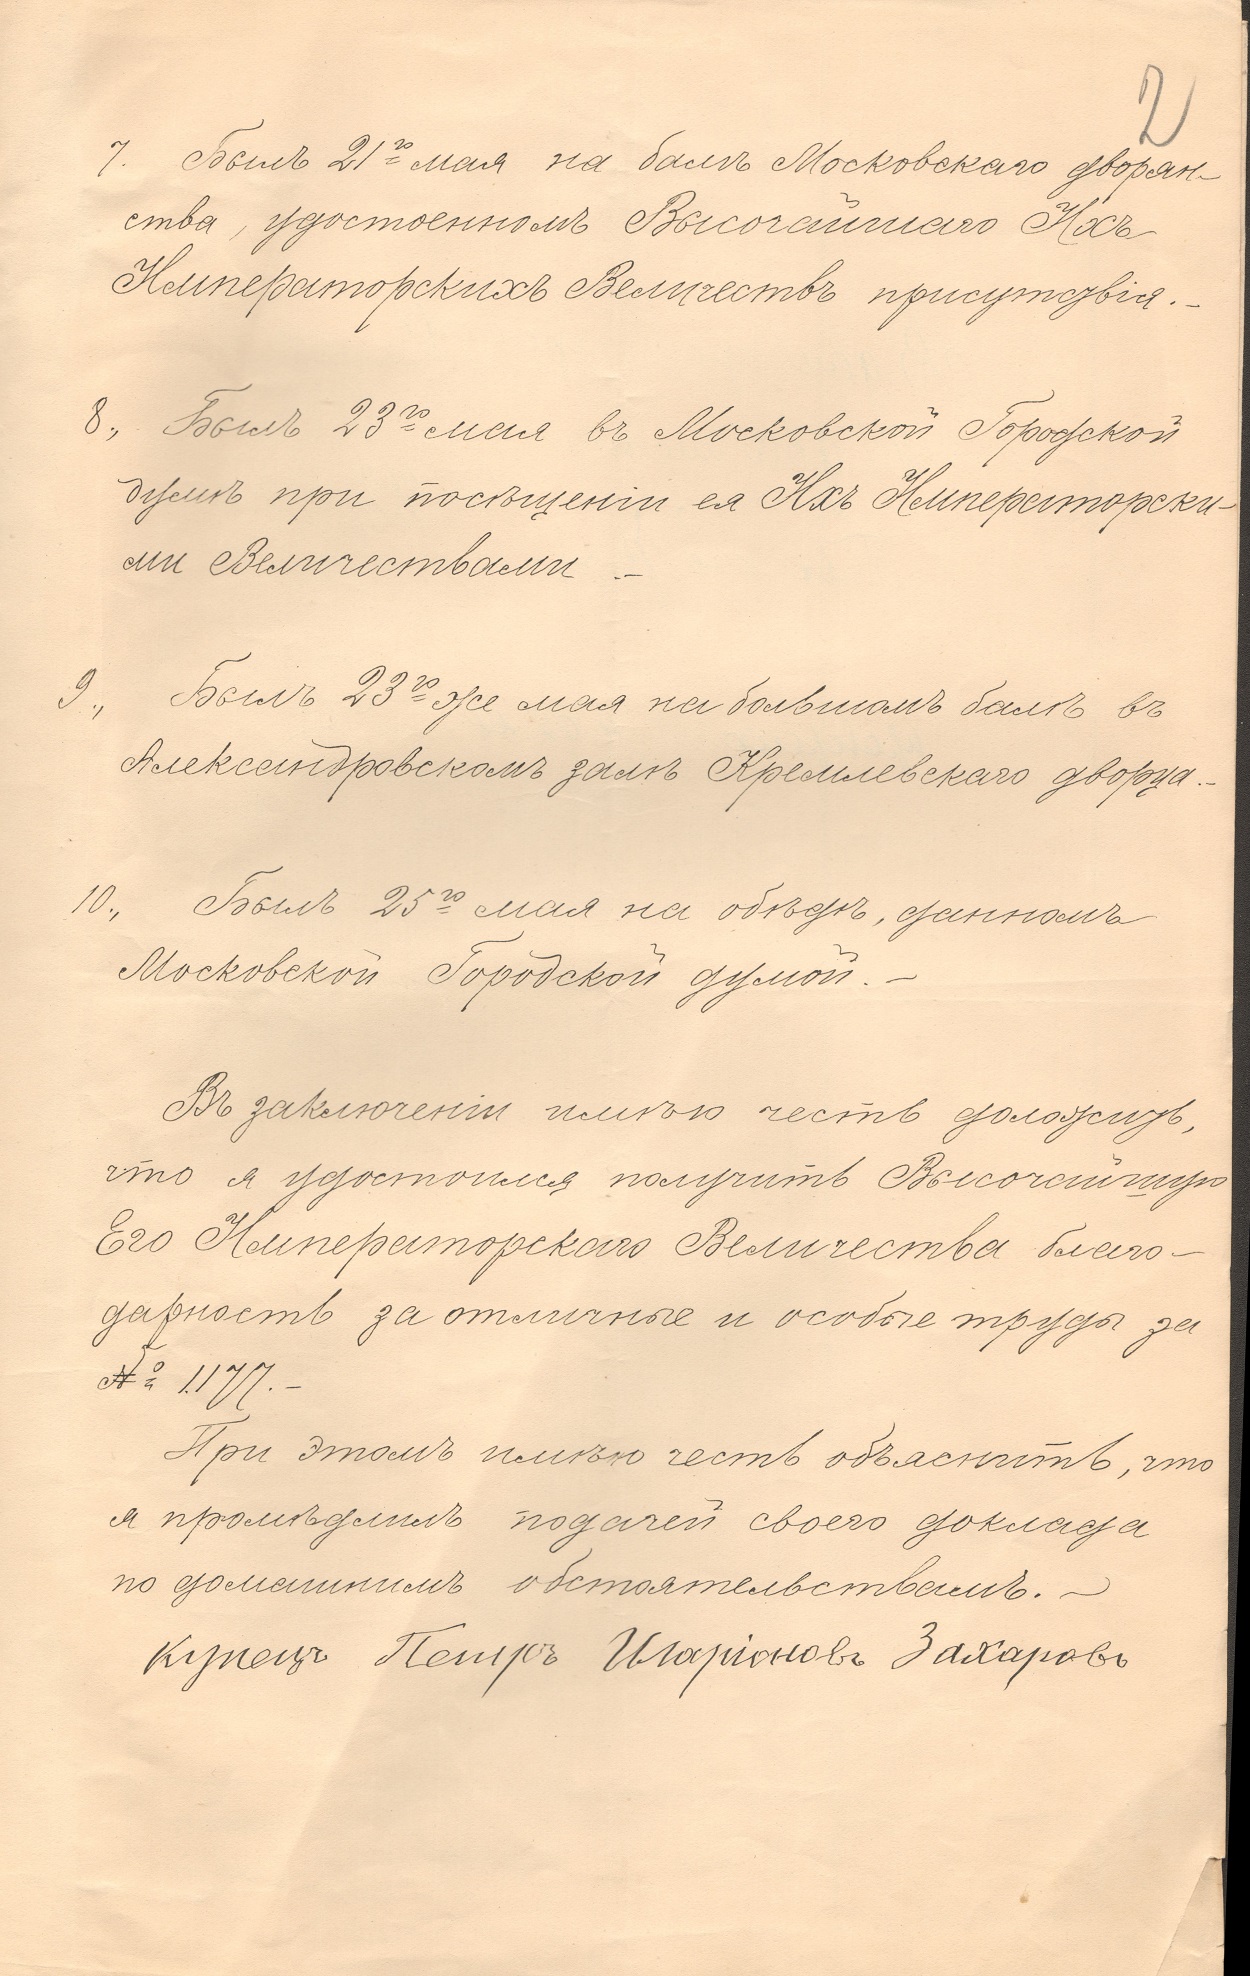 2
7. Былъ 21го мая на балѣ Московскаго дворян-
ства, удостоенномъ Высочайшаго Ихъ
Императорскихъ Величествъ присутствія.-
8., Былъ 23го мая въ Московской Городской
думѣ при посѣщеніи ея Ихъ Императорски-
ми Величествами.-
9., Былъ 23го же мая на большомъ балѣ въ
Александровскомъ залѣ Кремлевскаго дворца.-
10., Былъ 25го мая на обѣдѣ, данномъ
Московской Городской думой.-
Въ заключеніи имѣю честь доложить,
что я удостоился получить Высочайшую
Его Императорскаго Величества благо-
дарность за отличные и особые труды за
№ 1177.-
При этомъ имѣю честь объяснить, что
я промѣдлилъ подачей своего доклада
по домашнимъ обстоятельствамъ.-
Купецъ Петръ Иларіоновъ Захаровъ